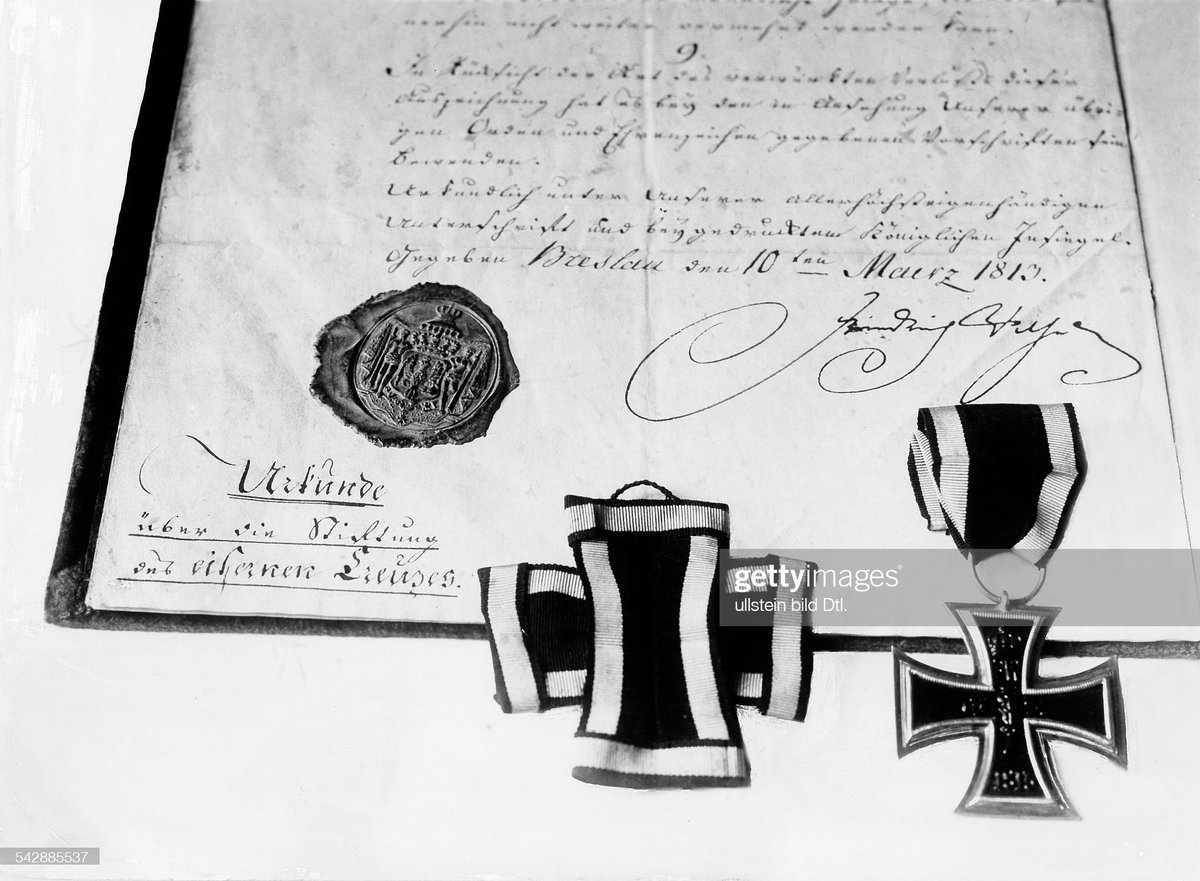 nerhin nicht weiter vermehrt werden kann.
9.
In Rücksicht der Art des verwürkten Verlusts dieser
Auszeichnung hat es bey den in Ansehung Unserer übri-
gen Orden und Ehrenzeichen gegebenen Vorschriften sein
Bewenden.
Urkundlich unter Unserer allerhöchsteigenhändigen
Unterschrift und beygedrucktem Königlichen Insiegel.
Gegeben Breslau den 10ten Maerz 1813.
Friedrich Wilhelm
Urkunde
über die Stiftung
des eisernen Creutzes.
gettyimages
ullstein bild Dtl.
1813
542885537